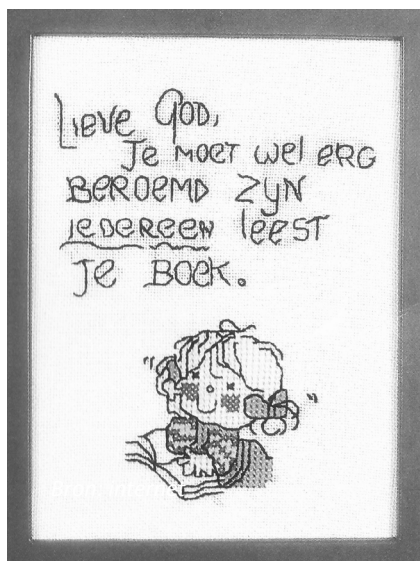 Lieve God,
Je moet wel erg
beroemd zyn
iedereen leest
je boek.